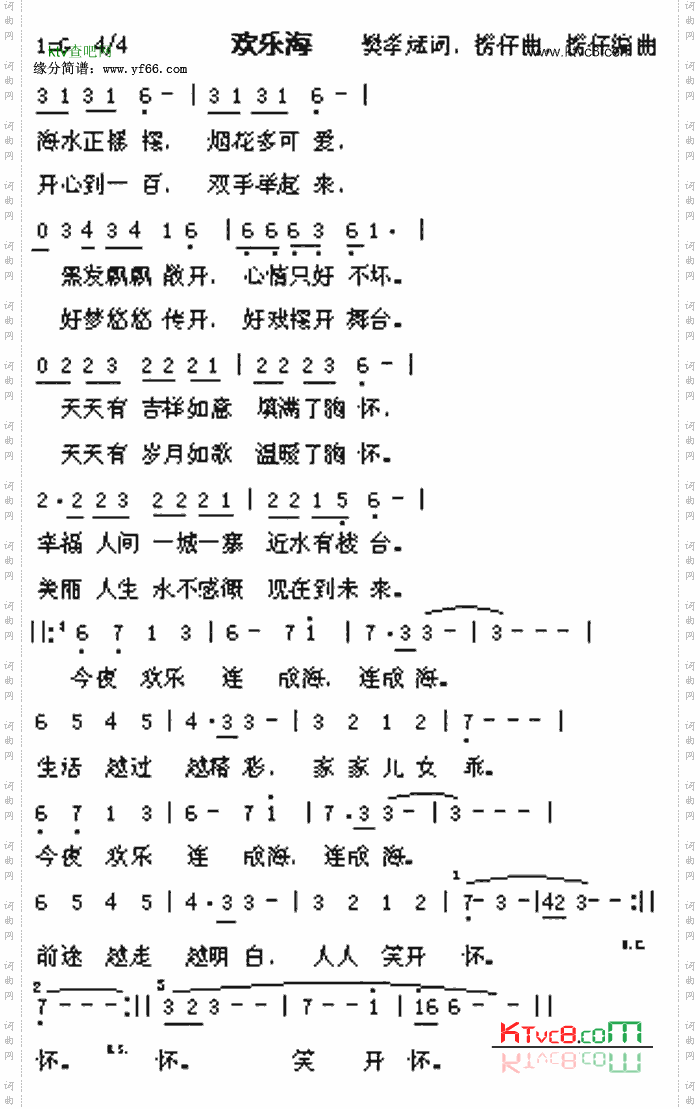 1=G 4/4 欢乐海 樊孝斌词、捞仔曲、捞仔编曲
ktv查吧网 www.ktvc8.com
缘分简谱: www.yf66.com
3 1 3 1 6 - | 3 1 3 1 6 - |
海水正摇摆，烟花多可爱，
开心到一百，双手举起来，
0 3 4 3 4 1 6 | 6 6 6 3 6 1 · |
黑发飘飘散开，心情只好不坏。
好梦悠悠传开，好戏摆开舞台。
0 2 2 3 2 2 2 1 | 2 2 2 3 6 - |
天天有吉祥如意 填满了胸怀，
天天有岁月如歌 温暖了胸怀。
2 · 2 2 3 2 2 2 1 | 2 2 1 5 6 - |
幸福人间一城一寨 近水有楼台。
美丽人生永不感慨 现在到未来。
||: 6 7 1 3 | 6 - 7 i | 7 · 3 3 - | 3 - - - |
今夜欢乐连成海，连成海。
6 5 4 5 | 4 · 3 3 - | 3 2 1 2 | 7 - - - |
生活越过越精彩，家家儿女乖。
6 7 1 3 | 6 - 7 i | 7 · 3 3 - | 3 - - - |
今夜欢乐连成海，连成海。
6 5 4 5 | 4 · 3 3 - | 3 2 1 2 | 1 7 - 3 - | 42 3 - - :||
前途越走越明白，人人笑开怀。 D.C.
2 7 - - - :|| 3 2 3 - - | 7 - - i | i6 6 - - - ||
怀。 D.S. 怀。 笑开怀。
KTvc8.com